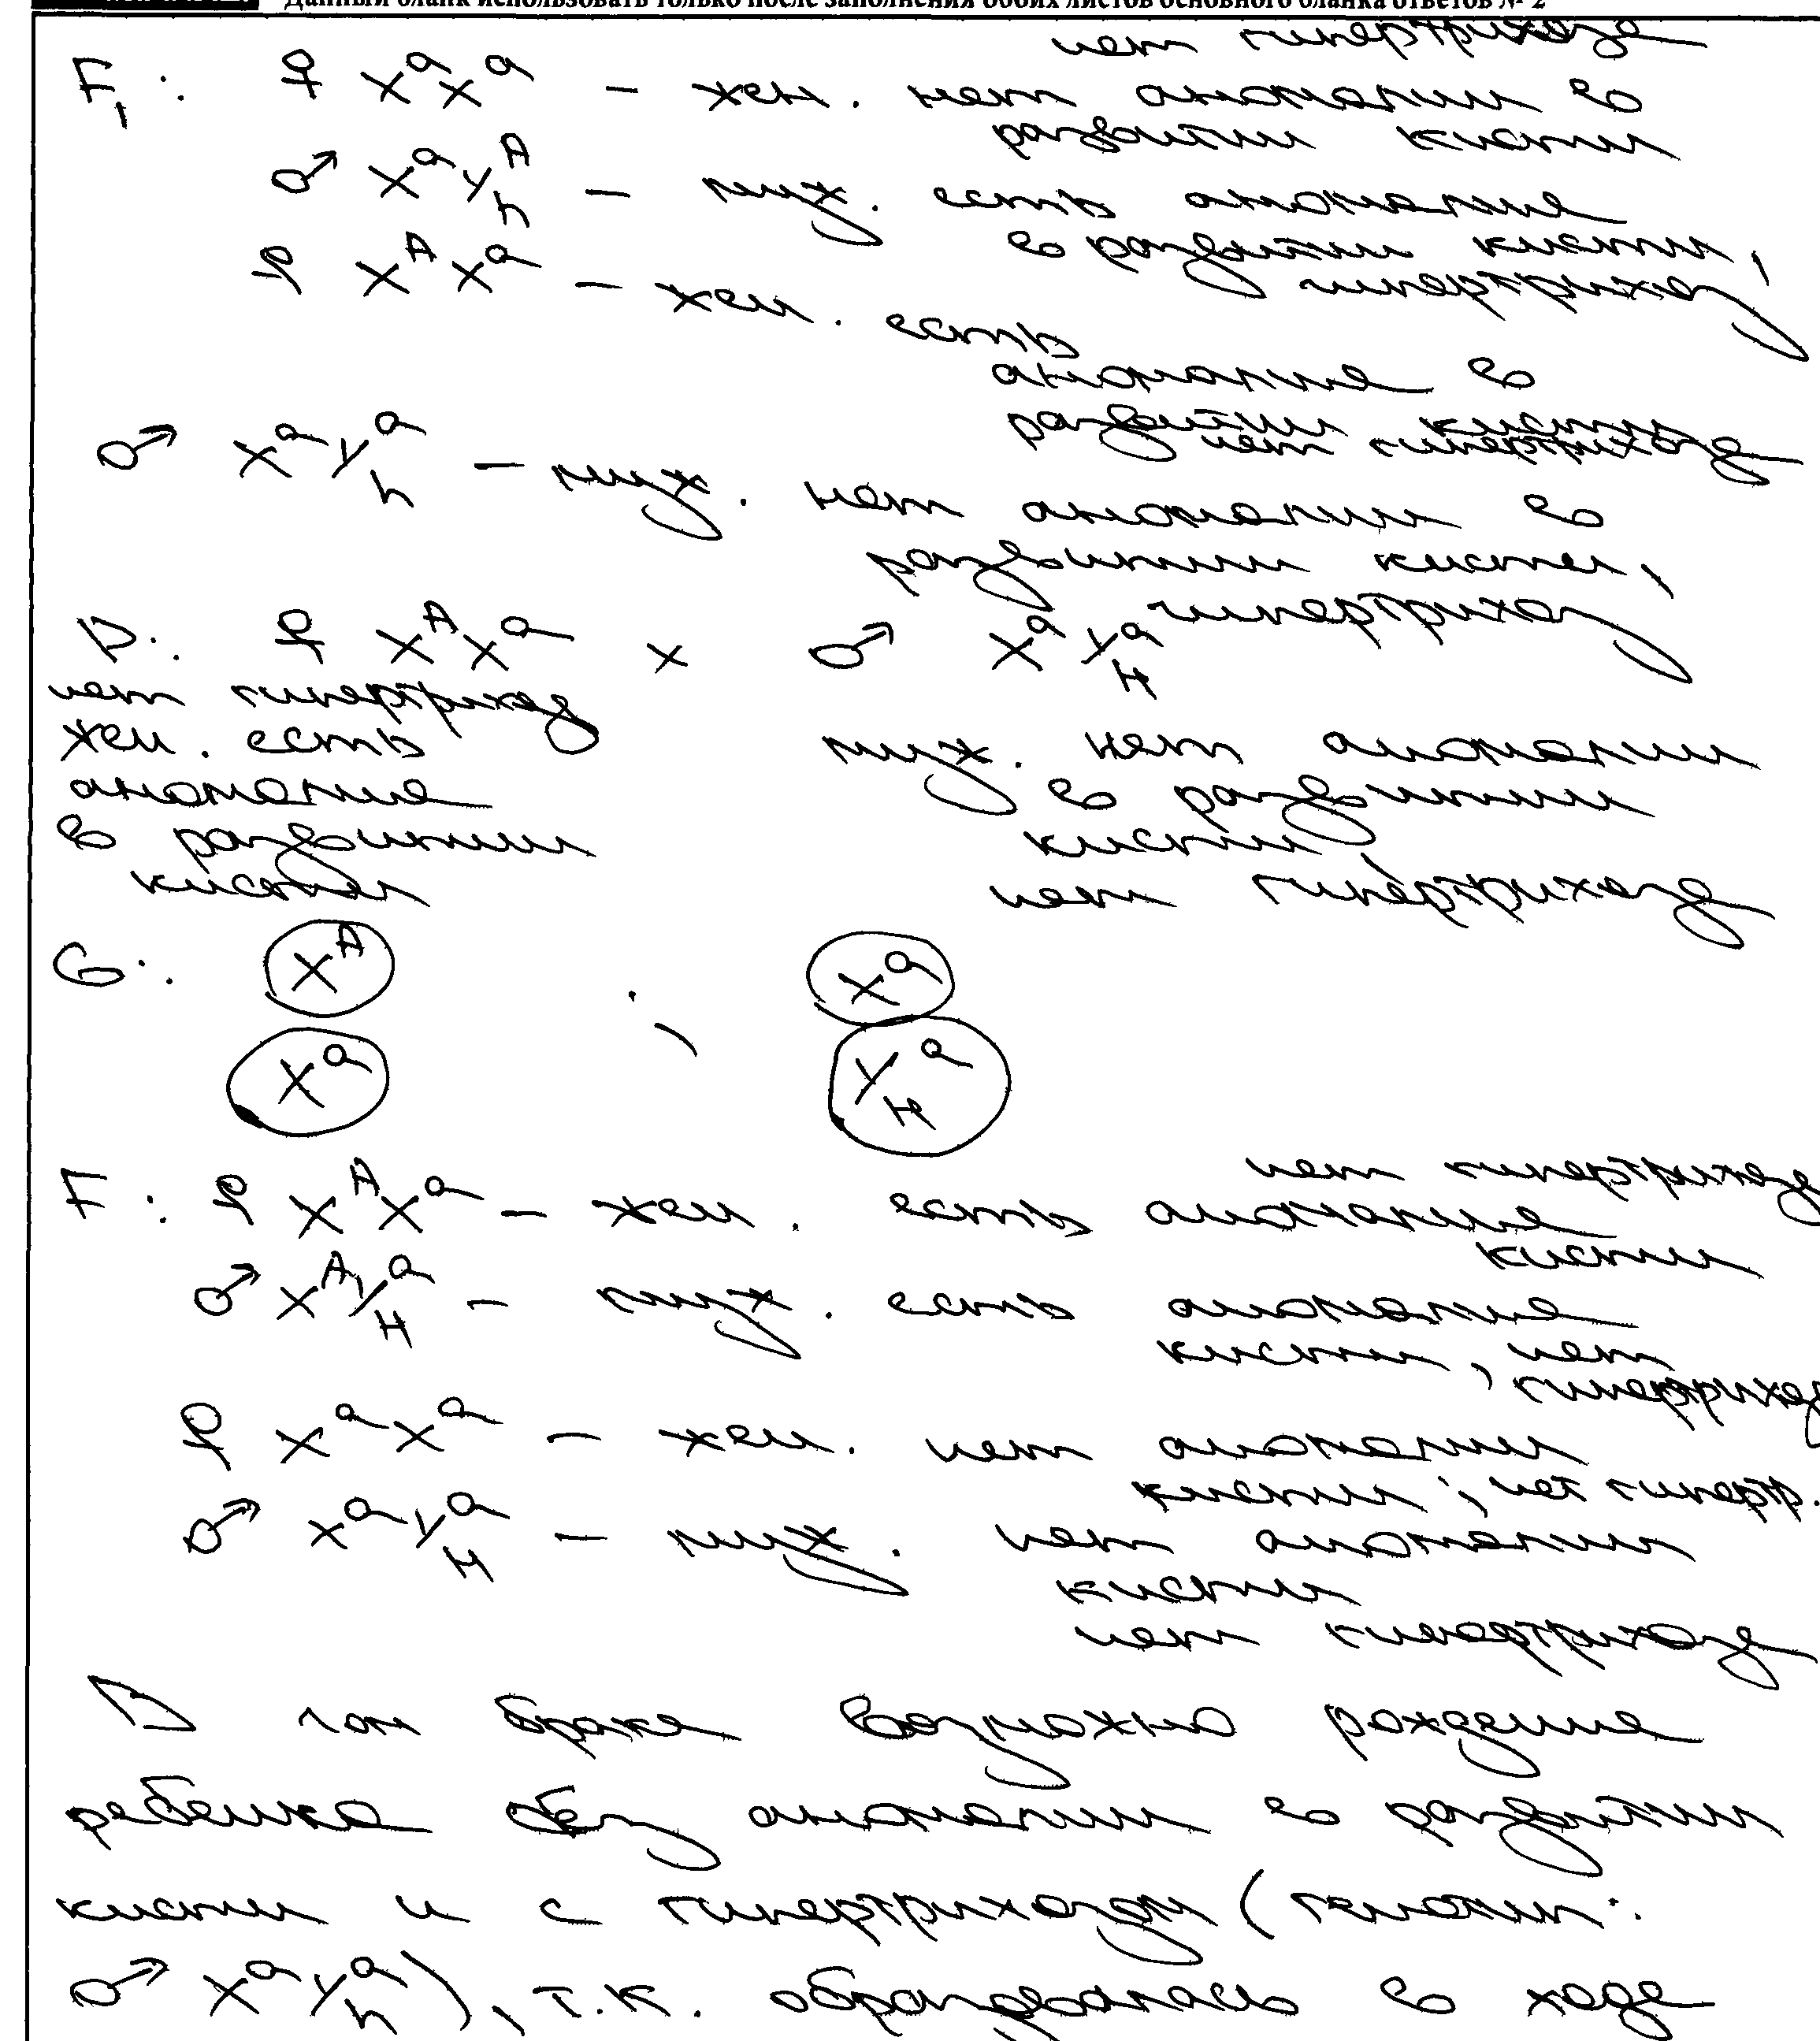 Данный бланк использовать только после заполнения обоих листов основного бланка ответов № 2
нет гипертрихоза
F₁: ♀ XᵃXᵃ – жен. нет аномалии в
развитии кисти
♂ XᵃYₕᴬ – муж. есть аномалия
в развитии кисти,
гипертрихоз
♀ XᴬXᵃ – жен. есть
аномалия в
развитии кисти
нет гипертрихоза
♂ XᵃYₕᵃ – муж. нет аномалии в
развитии кисти,
гипертрихоз
P: ♀ XᴬXᵃ x ♂ XᵃY_Hᵃ
нет гипертрихоза
жен. есть муж. нет аномалии
аномалия в развитии
в развитии кисти,
кисти нет гипертрихоза
G: Xᴬ , Xᵃ
Xᵃ Y_Hᵃ
нет гипертрихоза
F: ♀ XᴬXᵃ – жен. есть аномалия
кисти
♂ XᴬY_Hᵃ – муж. есть аномалия
кисти, нет
♀ XᵃXᵃ – жен. нет аномалии
кисти, нет гипертр.
♂ XᵃY_Hᵃ – муж. нет аномалии
кисти
нет гипертрихоза
В браке возможно рождение
ребенка без аномалии в развитии
кисти и с гипертрихозом (генотип:
♂ XᵃYₕᵃ), т.к. образовалась в ходе